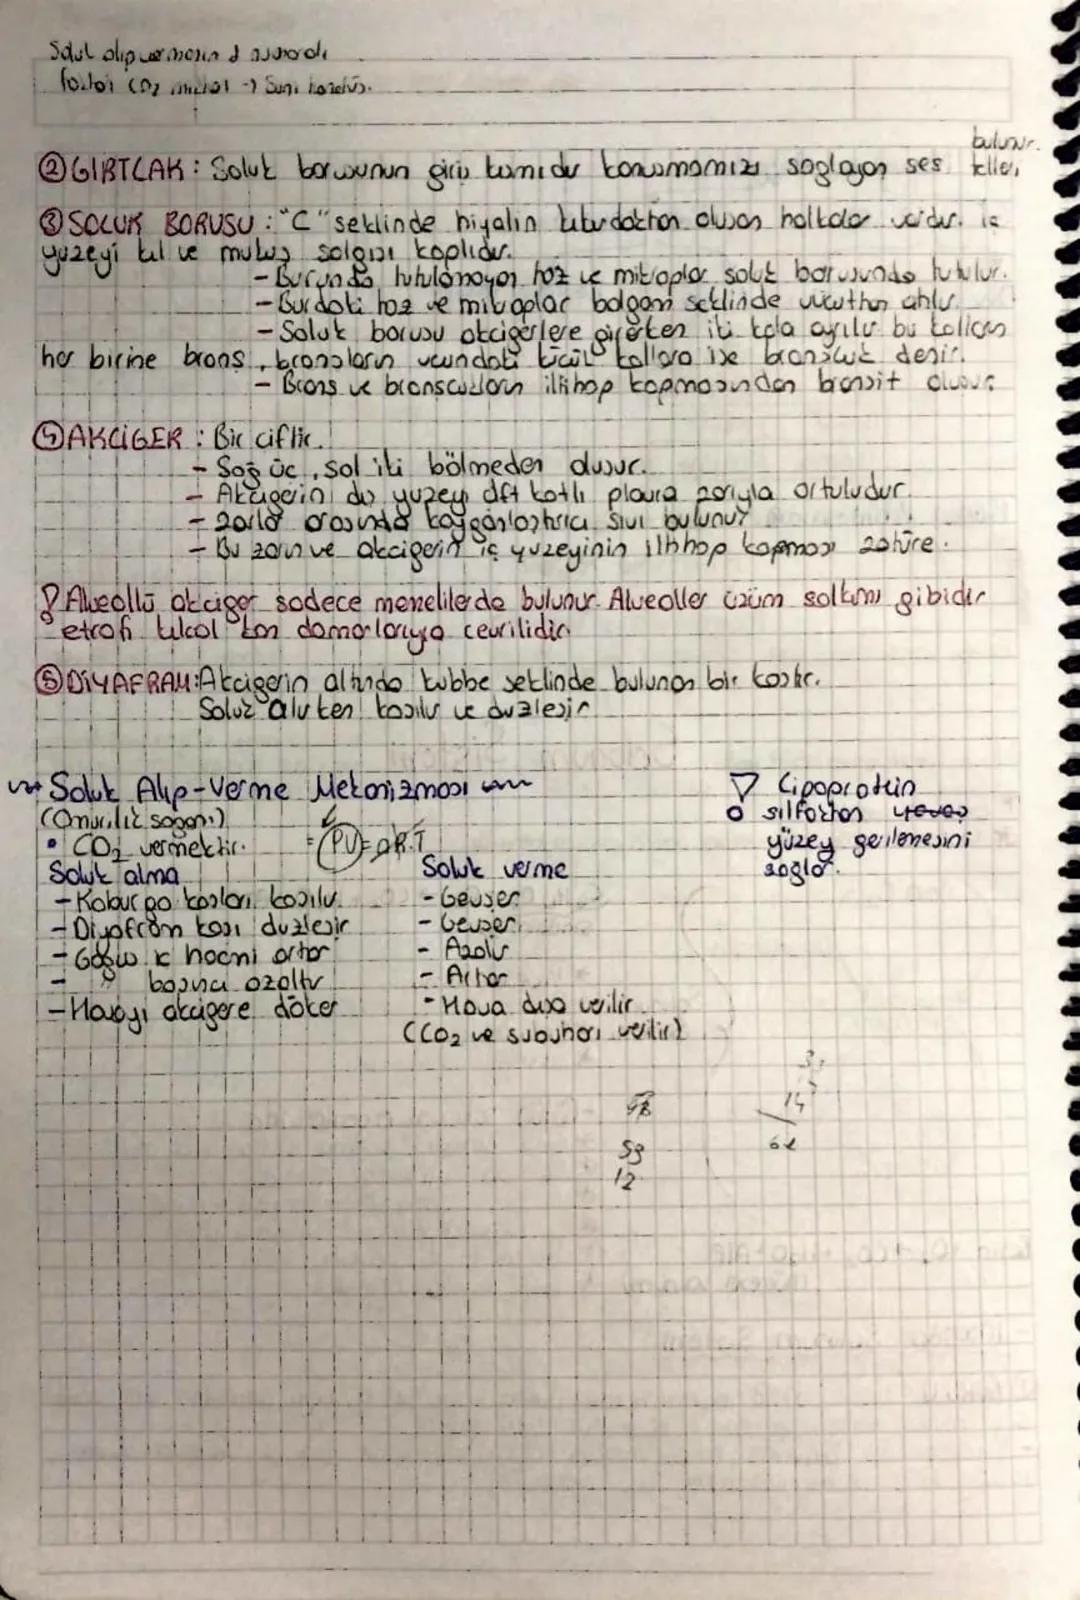 Soluk alıp vermenin
faktör CO2 miktarı →
bulunur.
② GIRTLAK : Soluk borusunun giriş kısmıdır konuşmamızı sağlayan ses telleri
③ SOLUK BORUSU : "C" seklinde hiyalin kıkırdaktan oluşan halkalar vardır. iç
yüzeyi kıl ve mukus salgısı kaplıdır.
- Burunda tutulamayan toz ve mikroplar soluk borusunda tutulur.
- Burdaki toz ve mikroplar balgam seklinde vücuttan atılır.
- Soluk borusu akcigerlere girerken iki kola ayrılır bu kolların
her birine brons, bronsların ucundaki küçük kollara ise bronscuk denir.
- Brons ve bronscukların iltihap kapmasından bronsit oluşur
④ AKCİGER : Bir çifttir.
- Sağ üç, sol iki bölmeden oluşur.
- Akcigerin dış yüzeyi çift katlı plaura zarıyla örtülüdür.
- Zarlar arasında kayganlaştırıcı sıvı bulunur
- Bu zarın ve akcigerin iç yüzeyinin iltihap kapması zatüre.
Alveollü akciger sadece memelilerde bulunur. Alveoller üzüm salkımı gibidir
etrafı kılcal kan damarlarıyla cevrilidir.
⑤ DİYAFRAM: Akcigerin altında kubbe seklinde bulunan bir kastır.
Soluk alırken kasılır ve düzlesir.
Soluk Alıp-Verme Mekanizması
(Omurilik soganı)
• CO2 vermektir.
PV = nR.T
Soluk alma
- Kaburga kasları kasılır.
- Diyafram kası düzlesir
- Göğüs iç hacmi artar
- " basıncı azaltır
- Havayı akcigere döker
Soluk verme
- Gevser
- Gevser
- Azalır
- Artar
- Hava dışa verilir
(CO2 ve su buharı verilir)
Lipoprotein
yüzey gerilemesini
sağlar.
14
53
12